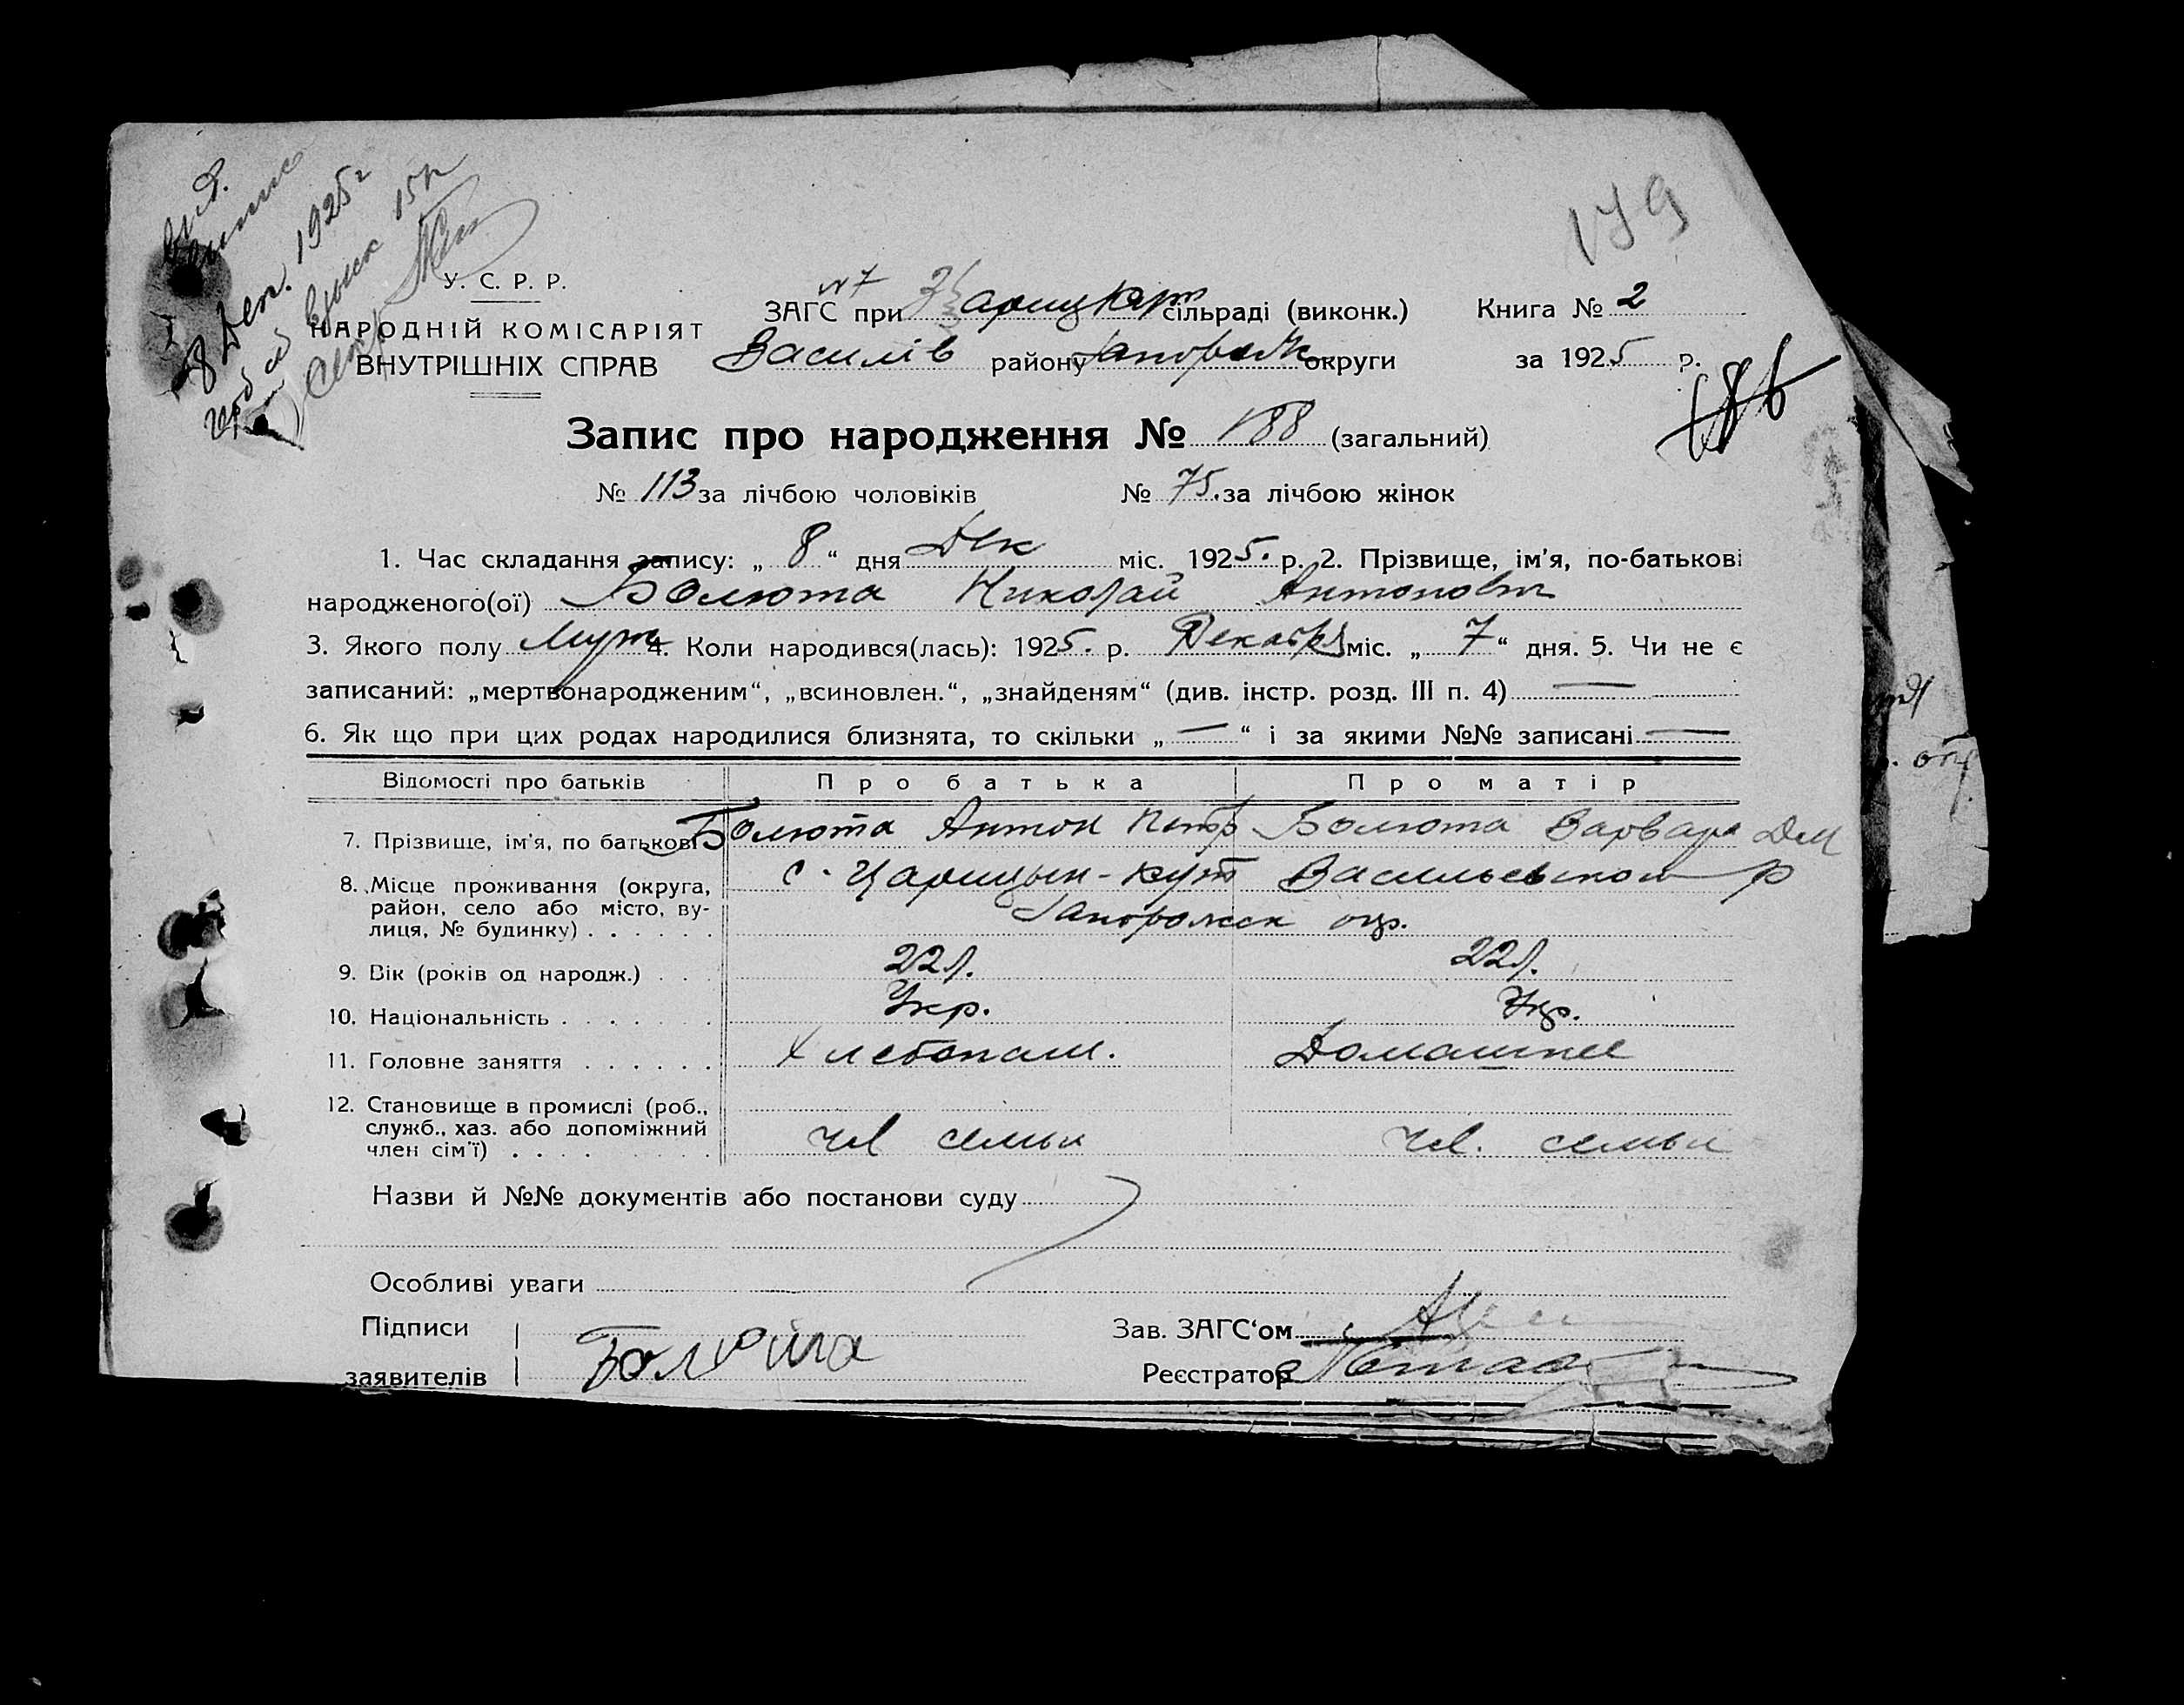 8 Дек. 1925 г
179
У. С. Р. Р.
НАРОДНІЙ КОМІСАРІЯТ
ВНУТРІШНІХ СПРАВ
№ 7
ЗАГС при сільраді (виконк.) Книга № 2
Василів району округи за 1925 р.
186
Запис про народження № 188 (загальний)
№ 113 за лічбою чоловіків № 75. за лічбою жінок
1. Час складання запису: „ 8 “ дня Дек міс. 1925. р. 2. Прізвище, ім’я, по-батькові
народженого(ої) Болюта Николай Антонович
3. Якого полу Муж 4. Коли народився(лась): 1925. р. Декабря міс. „ 7 “ дня. 5. Чи не є
записаний: „мертвонародженим“, „всиновлен.“, „знайденям“ (див. інстр. розд. III п. 4) —
6. Як що при цих родах народилися близнята, то скільки „ — “ і за якими №№ записані —
Відомості про батьків Про батька Про матір
7. Прізвище, ім’я, по батькові Болюта Антон Петр Болюта Варвара Дм
8. Місце проживання (округа, район, село або місто, вулиця, № будинку) . . . . . . с. Царицын-кут Васильевского р
Запорожск окр.
9. Вік (років од народж.) . . . 22 л. 22 л.
10. Національність . . . . . . . Укр. Укр.
11. Головне заняття . . . . . . Хлебопаш. Домашнее
12. Становище в промислі (роб., служб., хаз. або допоміжний член сім’ї) . . . . чл семьи чл. семьи
Назви й №№ документів або постанови суду
Особливі уваги
Підписи заявителів Болюта
Зав. ЗАГС‘ом
Реєстратор